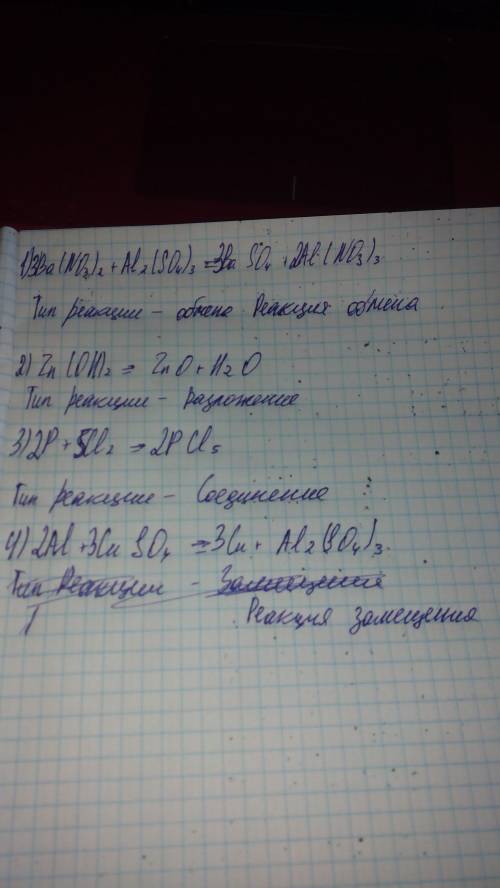 1) 3Ba(NO₃)₂ + Al₂(SO₄)₃ = 3Ba SO₄ + 2Al (NO₃)₃
Тип реакции - обмена Реакция обмена
2) Zn (OH)₂ = ZnO + H₂O
Тип реакции - Разложение
3) 2P + 5Cl₂ = 2P Cl₅
Тип реакции - Соединение
4) 2Al + 3Cu SO₄ = 3Cu + Al₂(SO₄)₃.
Тип Реакции - Замещение
Реакция замещения